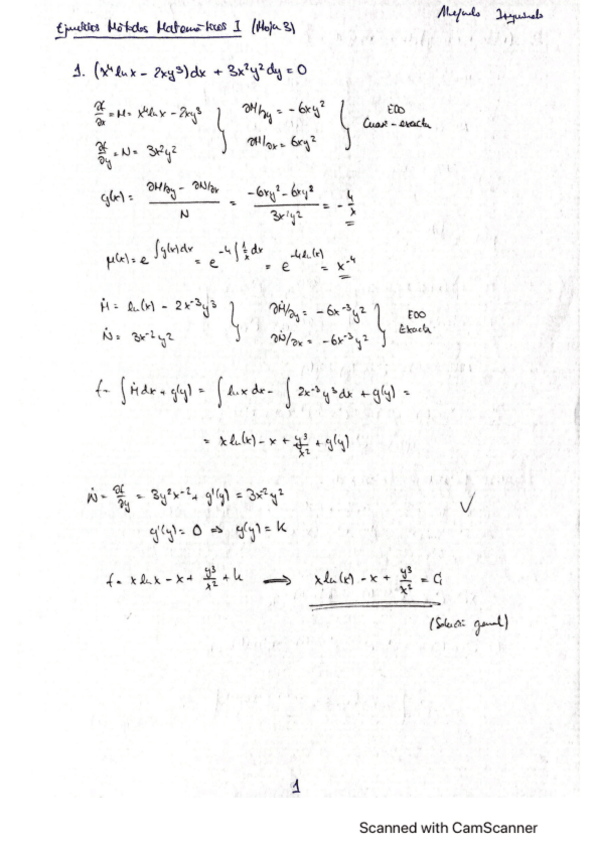 Ejercicios Métodos Matemáticos I (Hoja 3)
1. (x⁴lnx - 2xy³)dx + 3x²y²dy = 0
∂f/∂x = M = x⁴lnx - 2xy³ } ∂M/∂y = -6xy² } EDO
∂f/∂y = N = 3x²y² } ∂N/∂x = 6xy² } Cuasi-exacta
g(x) = (∂M/∂y - ∂N/∂x)/N = (-6xy² - 6xy²)/(3x²y²) = -4/x
μ(x) = e^∫g(x)dx = e^(-4∫(1/x)dx) = e^(-4ln(x)) = x⁻⁴
Ṁ = ln(x) - 2x⁻³y³ } ∂Ṁ/∂y = -6x⁻³y² } EDO
Ṅ = 3x⁻²y² } ∂Ṅ/∂x = -6x⁻³y² } Exacta
f = ∫Ṁdx + g(y) = ∫lnx dx - ∫2x⁻³y³dx + g(y) =
= xln(x) - x + y³/x² + g(y)
Ṅ = ∂f/∂y = 3y²x⁻² + g'(y) = 3x⁻²y²
g'(y) = 0 ⇒ g(y) = k
f = xlnx - x + y³/x² + k → xln(x) - x + y³/x² = C
(Solución general)
1
Scanned with CamScanner